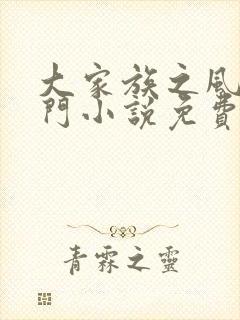 大家族之風
門小說免費
青霖之靈